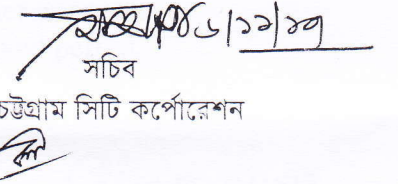 ৬/১১/১৭
সচিব
চট্টগ্রাম সিটি কর্পোরেশন